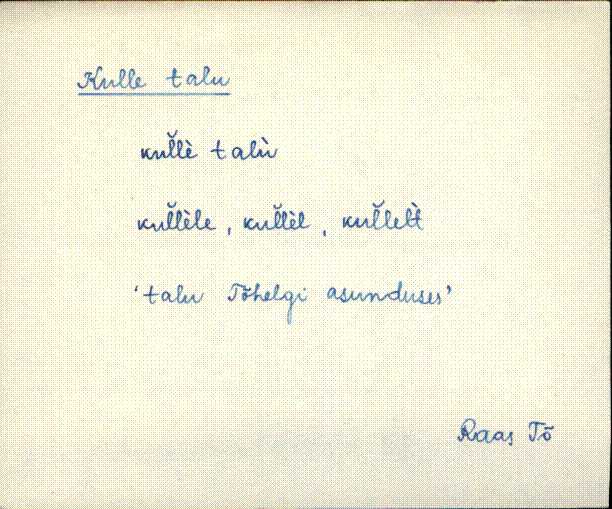 Kulle talu
kul̆lè talù
kul̆lèle, kul̆lèl, kul̆lelt̀
‘talu Tõhelgi asunduses’
Raas Tõ